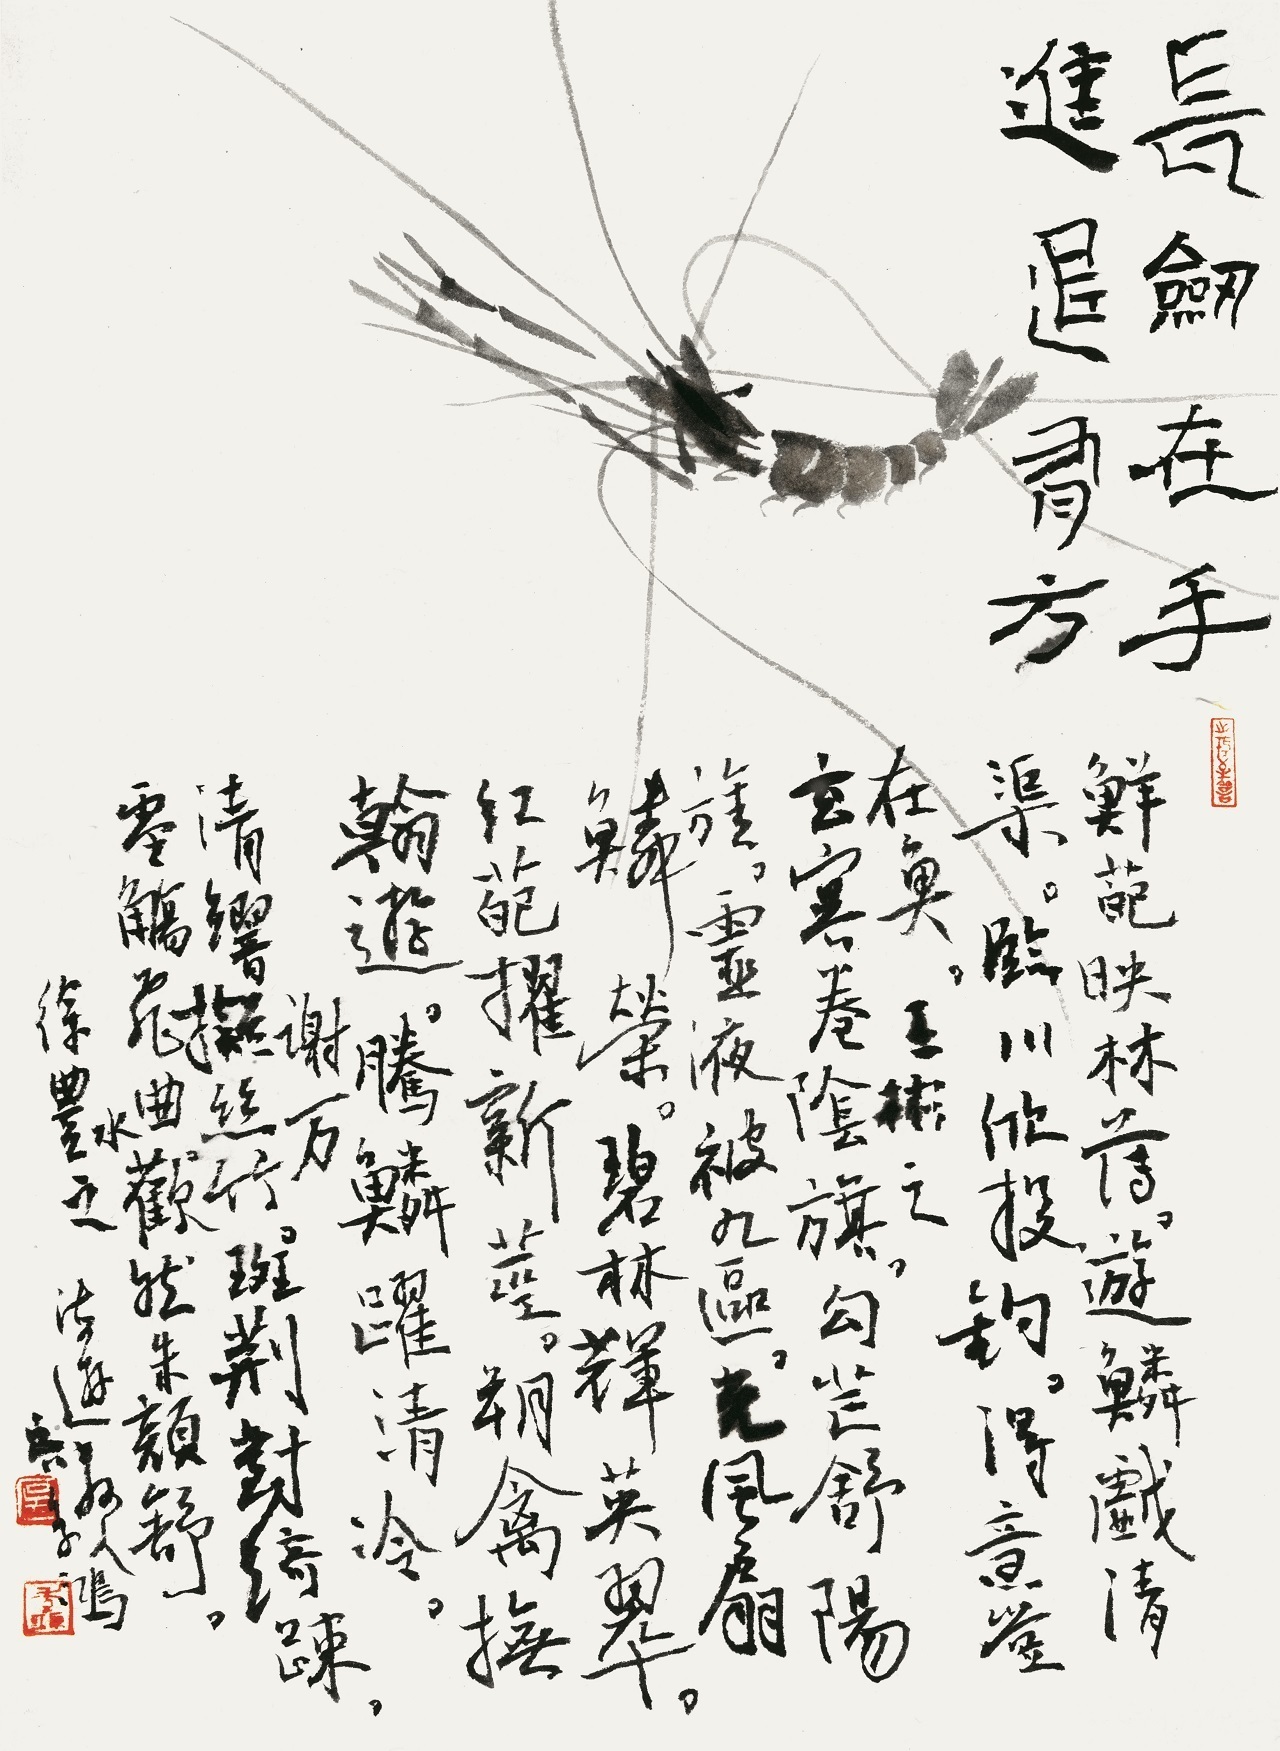 長劍在手
進退有方
鮮葩映林薄。遊鱗戲清
渠。臨川欣投釣。得意豈
在魚。王彬之
玄崿卷陰旗。勾芒舒陽
旌。靈液被九區。光風扇
鱗榮。碧林輝英翠。
紅葩擢新莖。翔禽撫
翰遊。騰鱗躍清泠。
謝万
清響擬絲竹。班荆對綺疎。
零觴飛曲水。歡然朱顏舒。
徐豐之